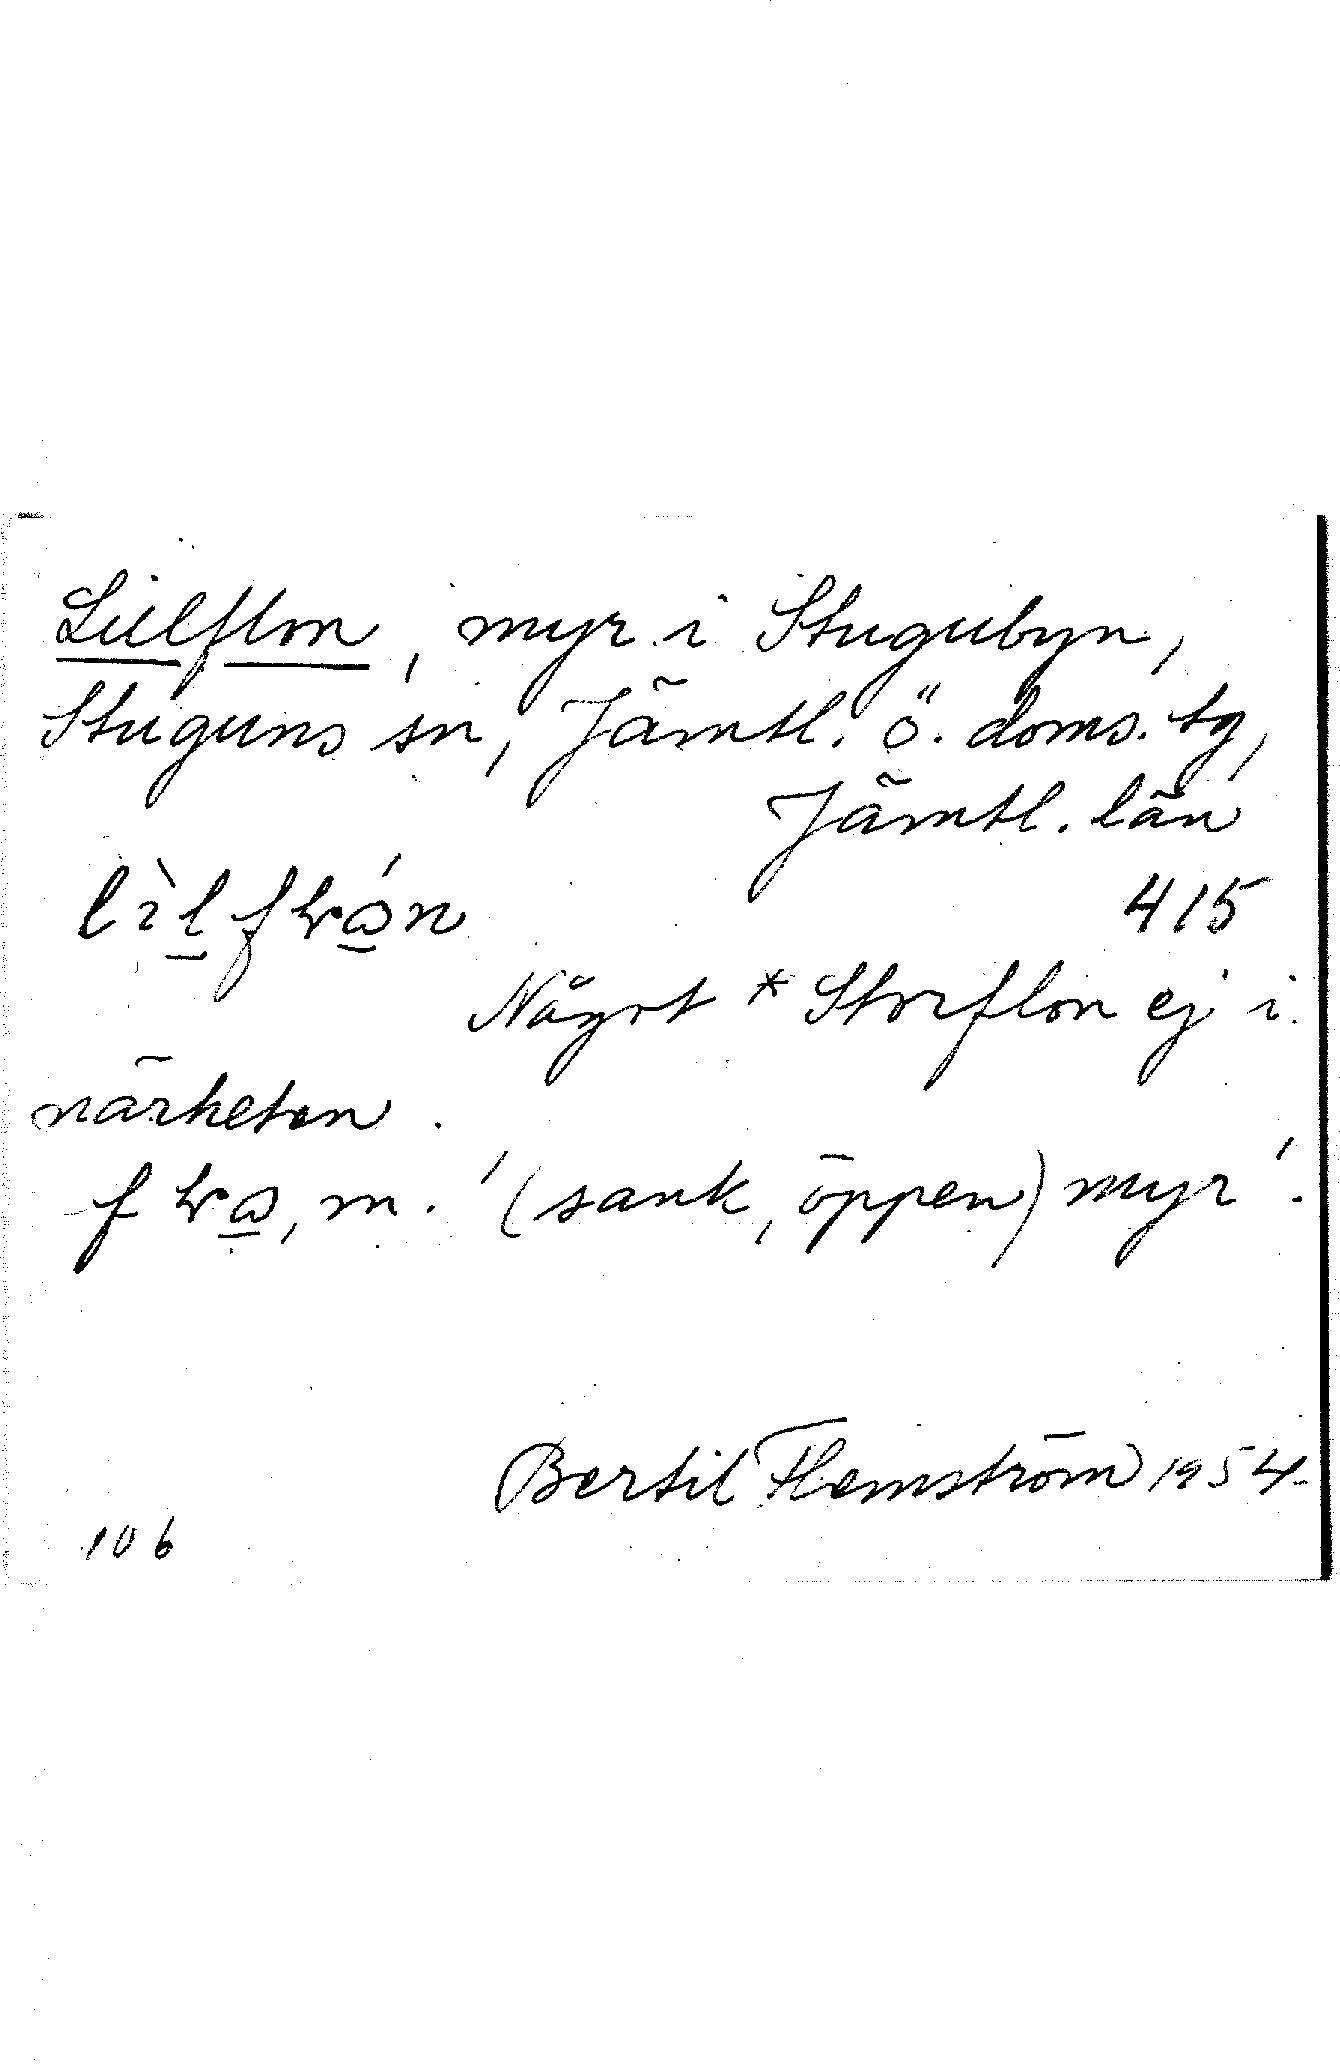 Lillflon, myr i Stugubyn,
Stuguns sn, Jämtl. ö. doms. tg,
Jämtl. län
415
Något *Storflon ej i
närheten.
m. '(sank, öppen) myr'.
Bertil Flemström 1954
106